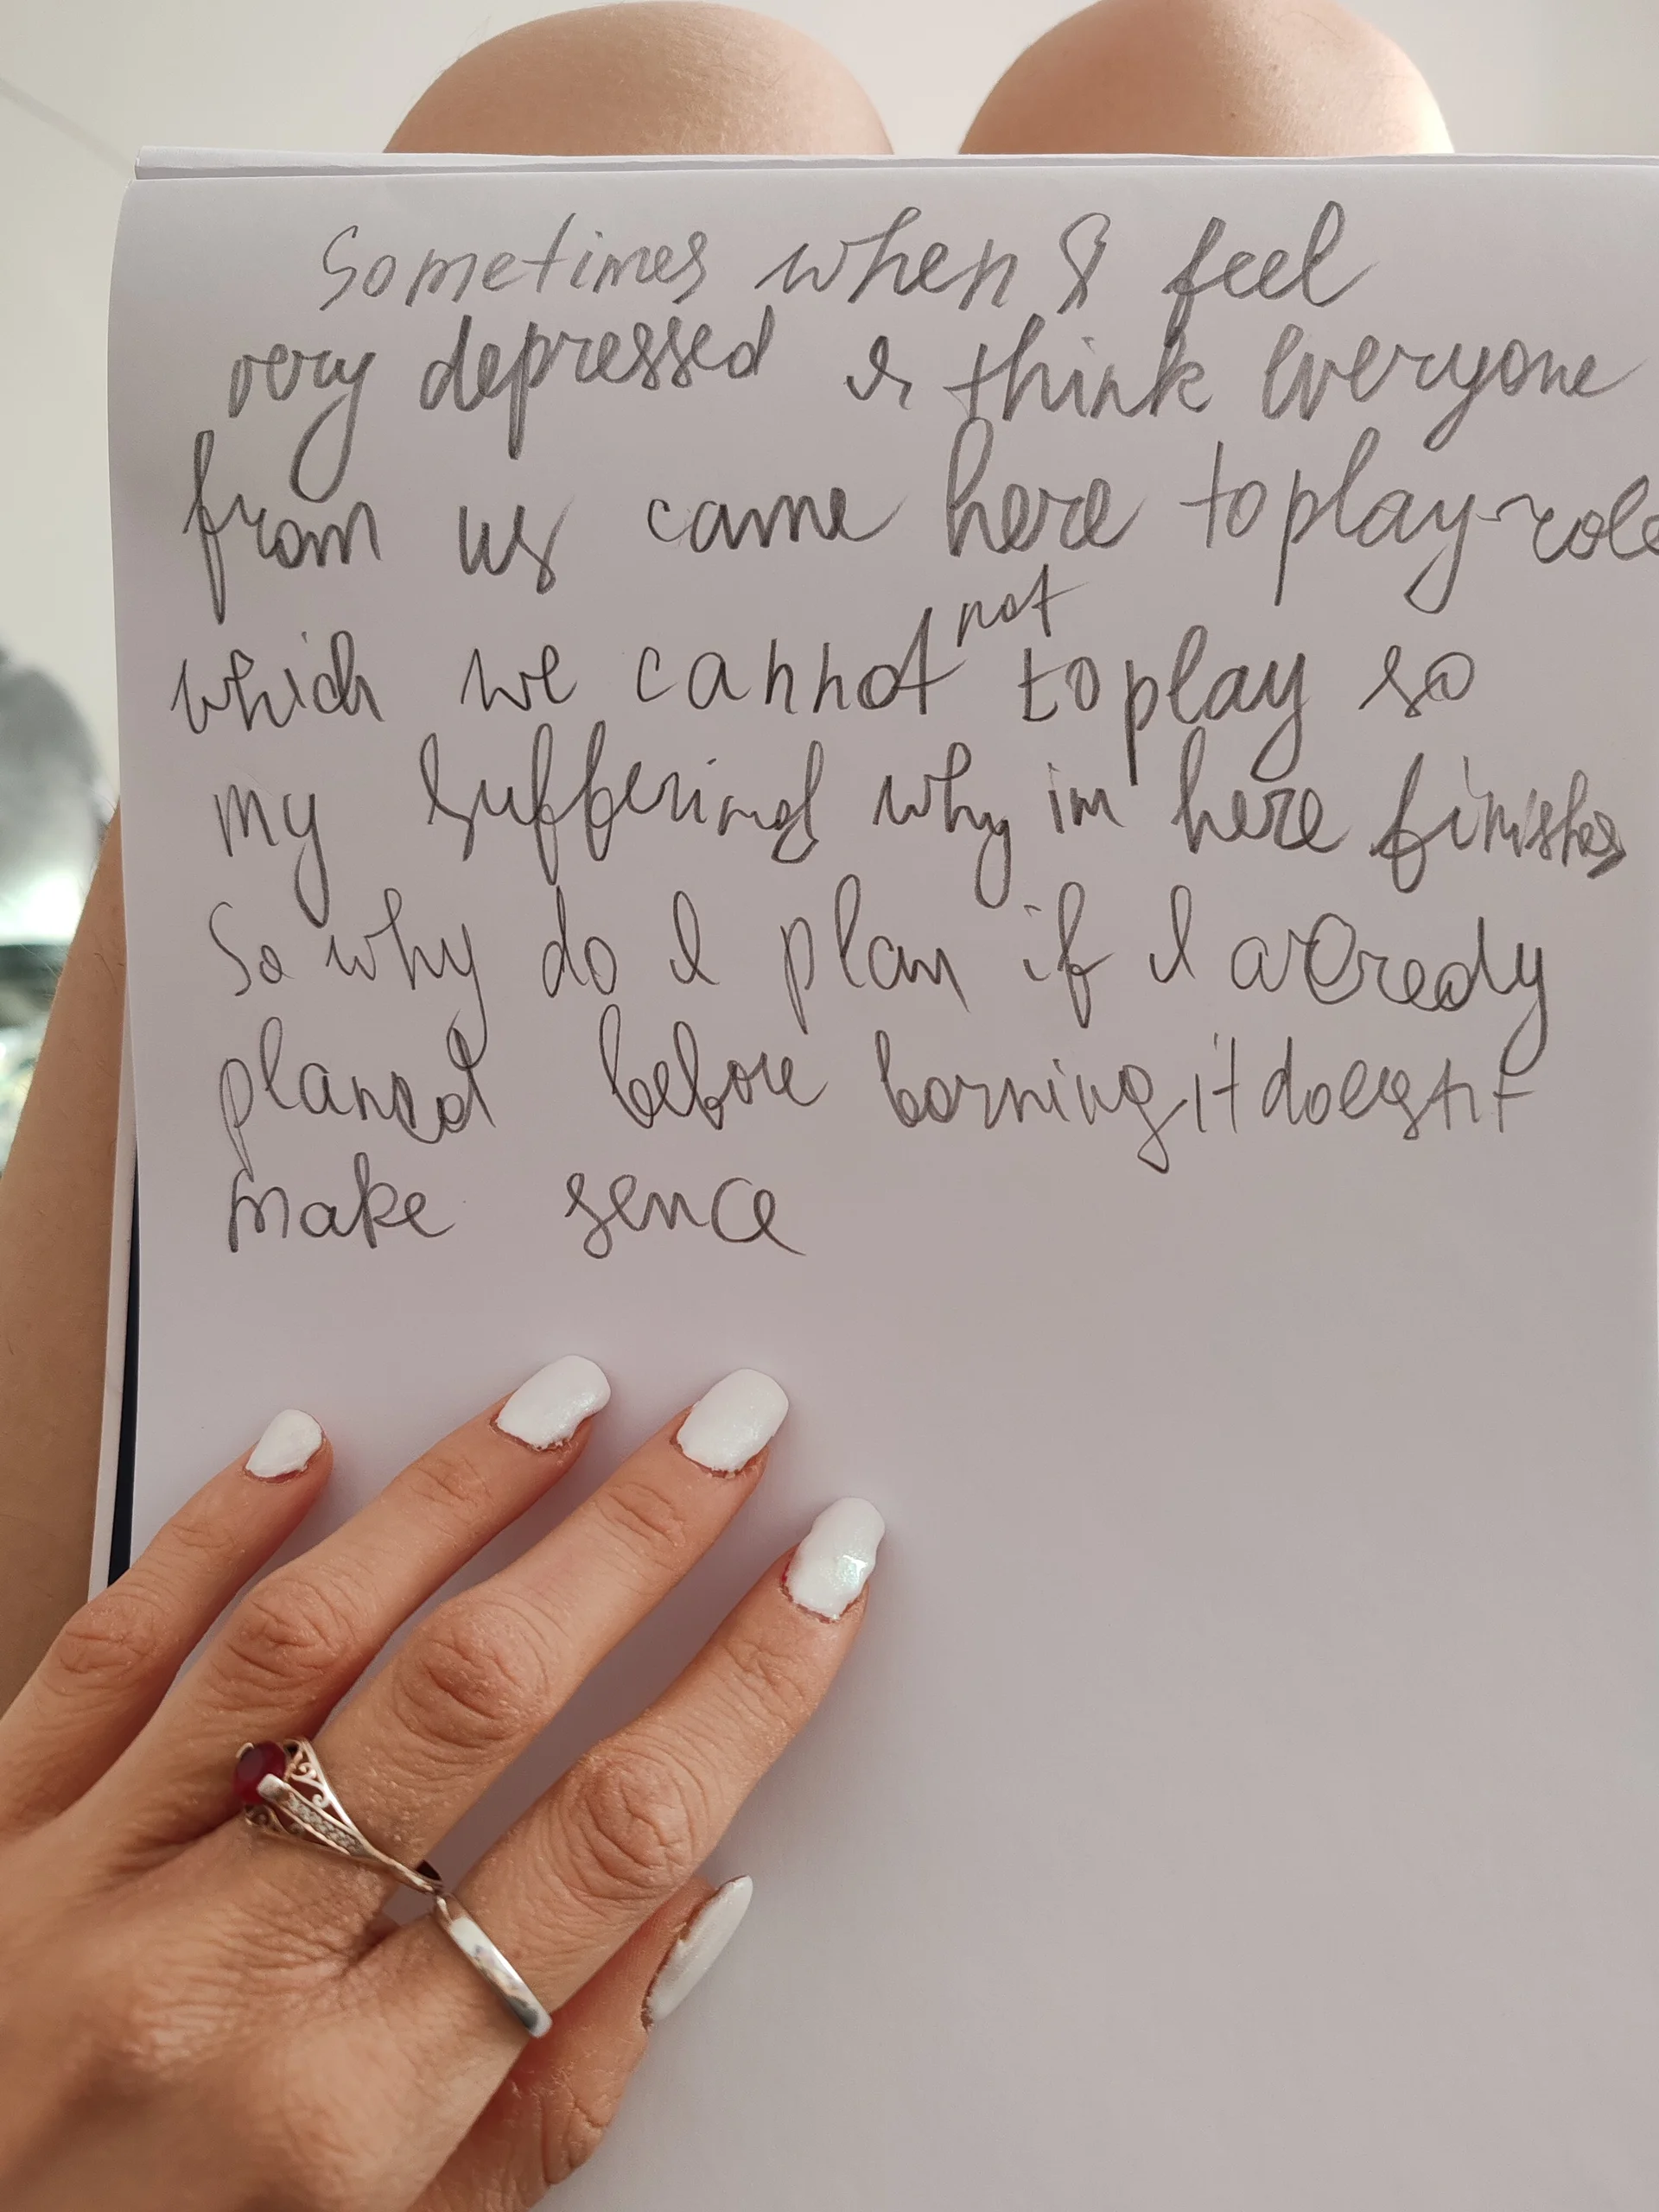 Sometimes when I feel
very depressed I think everyone
from us came here to play role
which we cannot not to play so
my suffering why im here finishes
So why do I plan if I already
planed before borning, it doesnt
make sence